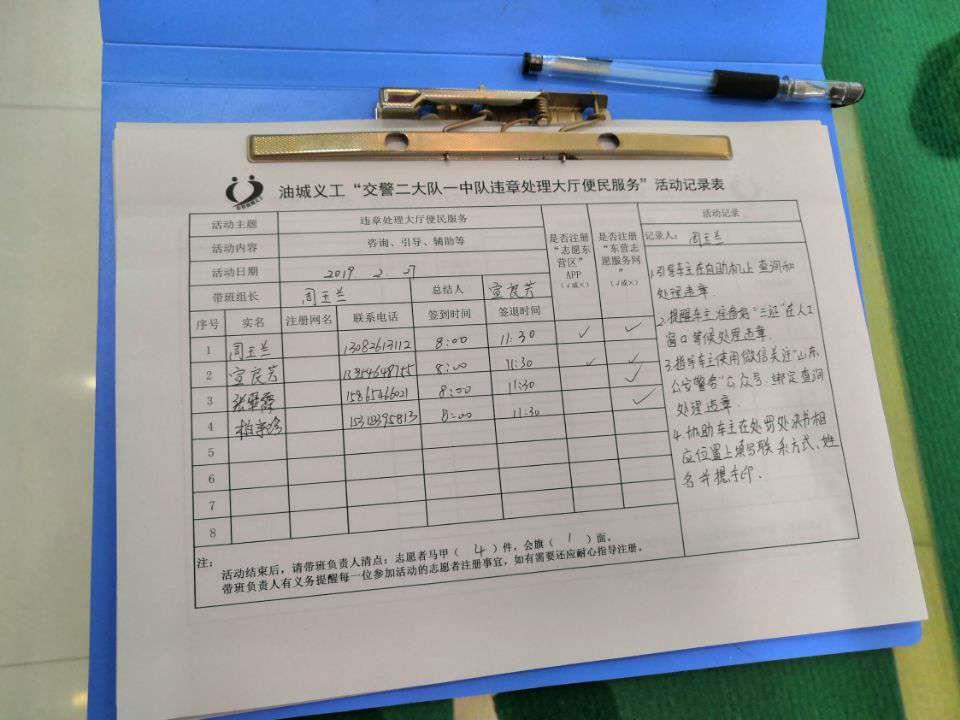 油城义工“交警二大队一中队违章处理大厅便民服务”活动记录表
活动主题 违章处理大厅便民服务
活动内容 咨询、引导、辅助等
活动日期 2019 2. 27
带班组长 周玉兰 总结人 宣良芳
是否注册“志愿东营区”APP（√或×）
是否注册“东营志愿服务网”（√或×）
序号 实名 注册网名 联系电话 签到时间 签退时间
1 周玉兰 13082613112 8:00 11:30 ✓ ✓
2 宣良芳 8:00 11:30 ✓ ✓
3 15865466021 8:00 11:30 ✓
4 8:00 11:30 ✓
5
6
7
8
活动记录
记录人： 周玉兰
1.引导车主在自助机上查询和
处理违章.
2.提醒车主准备好“三证”在人工
窗口等候处理违章.
3.指导车主使用微信关注“山东
公安警务”公众号.绑定查询
处理违章.
4.协助车主在处罚处决书相
应位置上填写联系方式、姓
名并摁手印.
注：
活动结束后，请带班负责人清点：志愿者马甲（ 4 ）件，会旗（ 1 ）面。
带班负责人有义务提醒每一位参加活动的志愿者注册事宜，如有需要还应耐心指导注册。